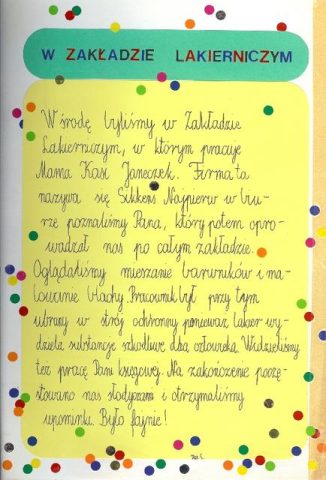 W ZAKŁADZIE LAKIERNICZYM
W środę byliśmy w Zakładzie
Lakierniczym, w którym pracuje
Mama Kasi Janeczek. Firma ta
nazywa się Sikkens Najpierw w biu-
rze poznaliśmy Pana, który potem opro-
wadzał nas po całym zakładzie.
Oglądaliśmy mieszanie barwników i ma-
lowanie blachy. Pracownik był przy tym
ubrany w strój ochronny ponieważ lakier wy-
dziela substancje szkodliwe dla człowieka. Widzieliśmy
też pracę Pani księgowej. Na zakończenie poczę-
stowano nas słodyczami i otrzymaliśmy
upominki. Było fajnie!